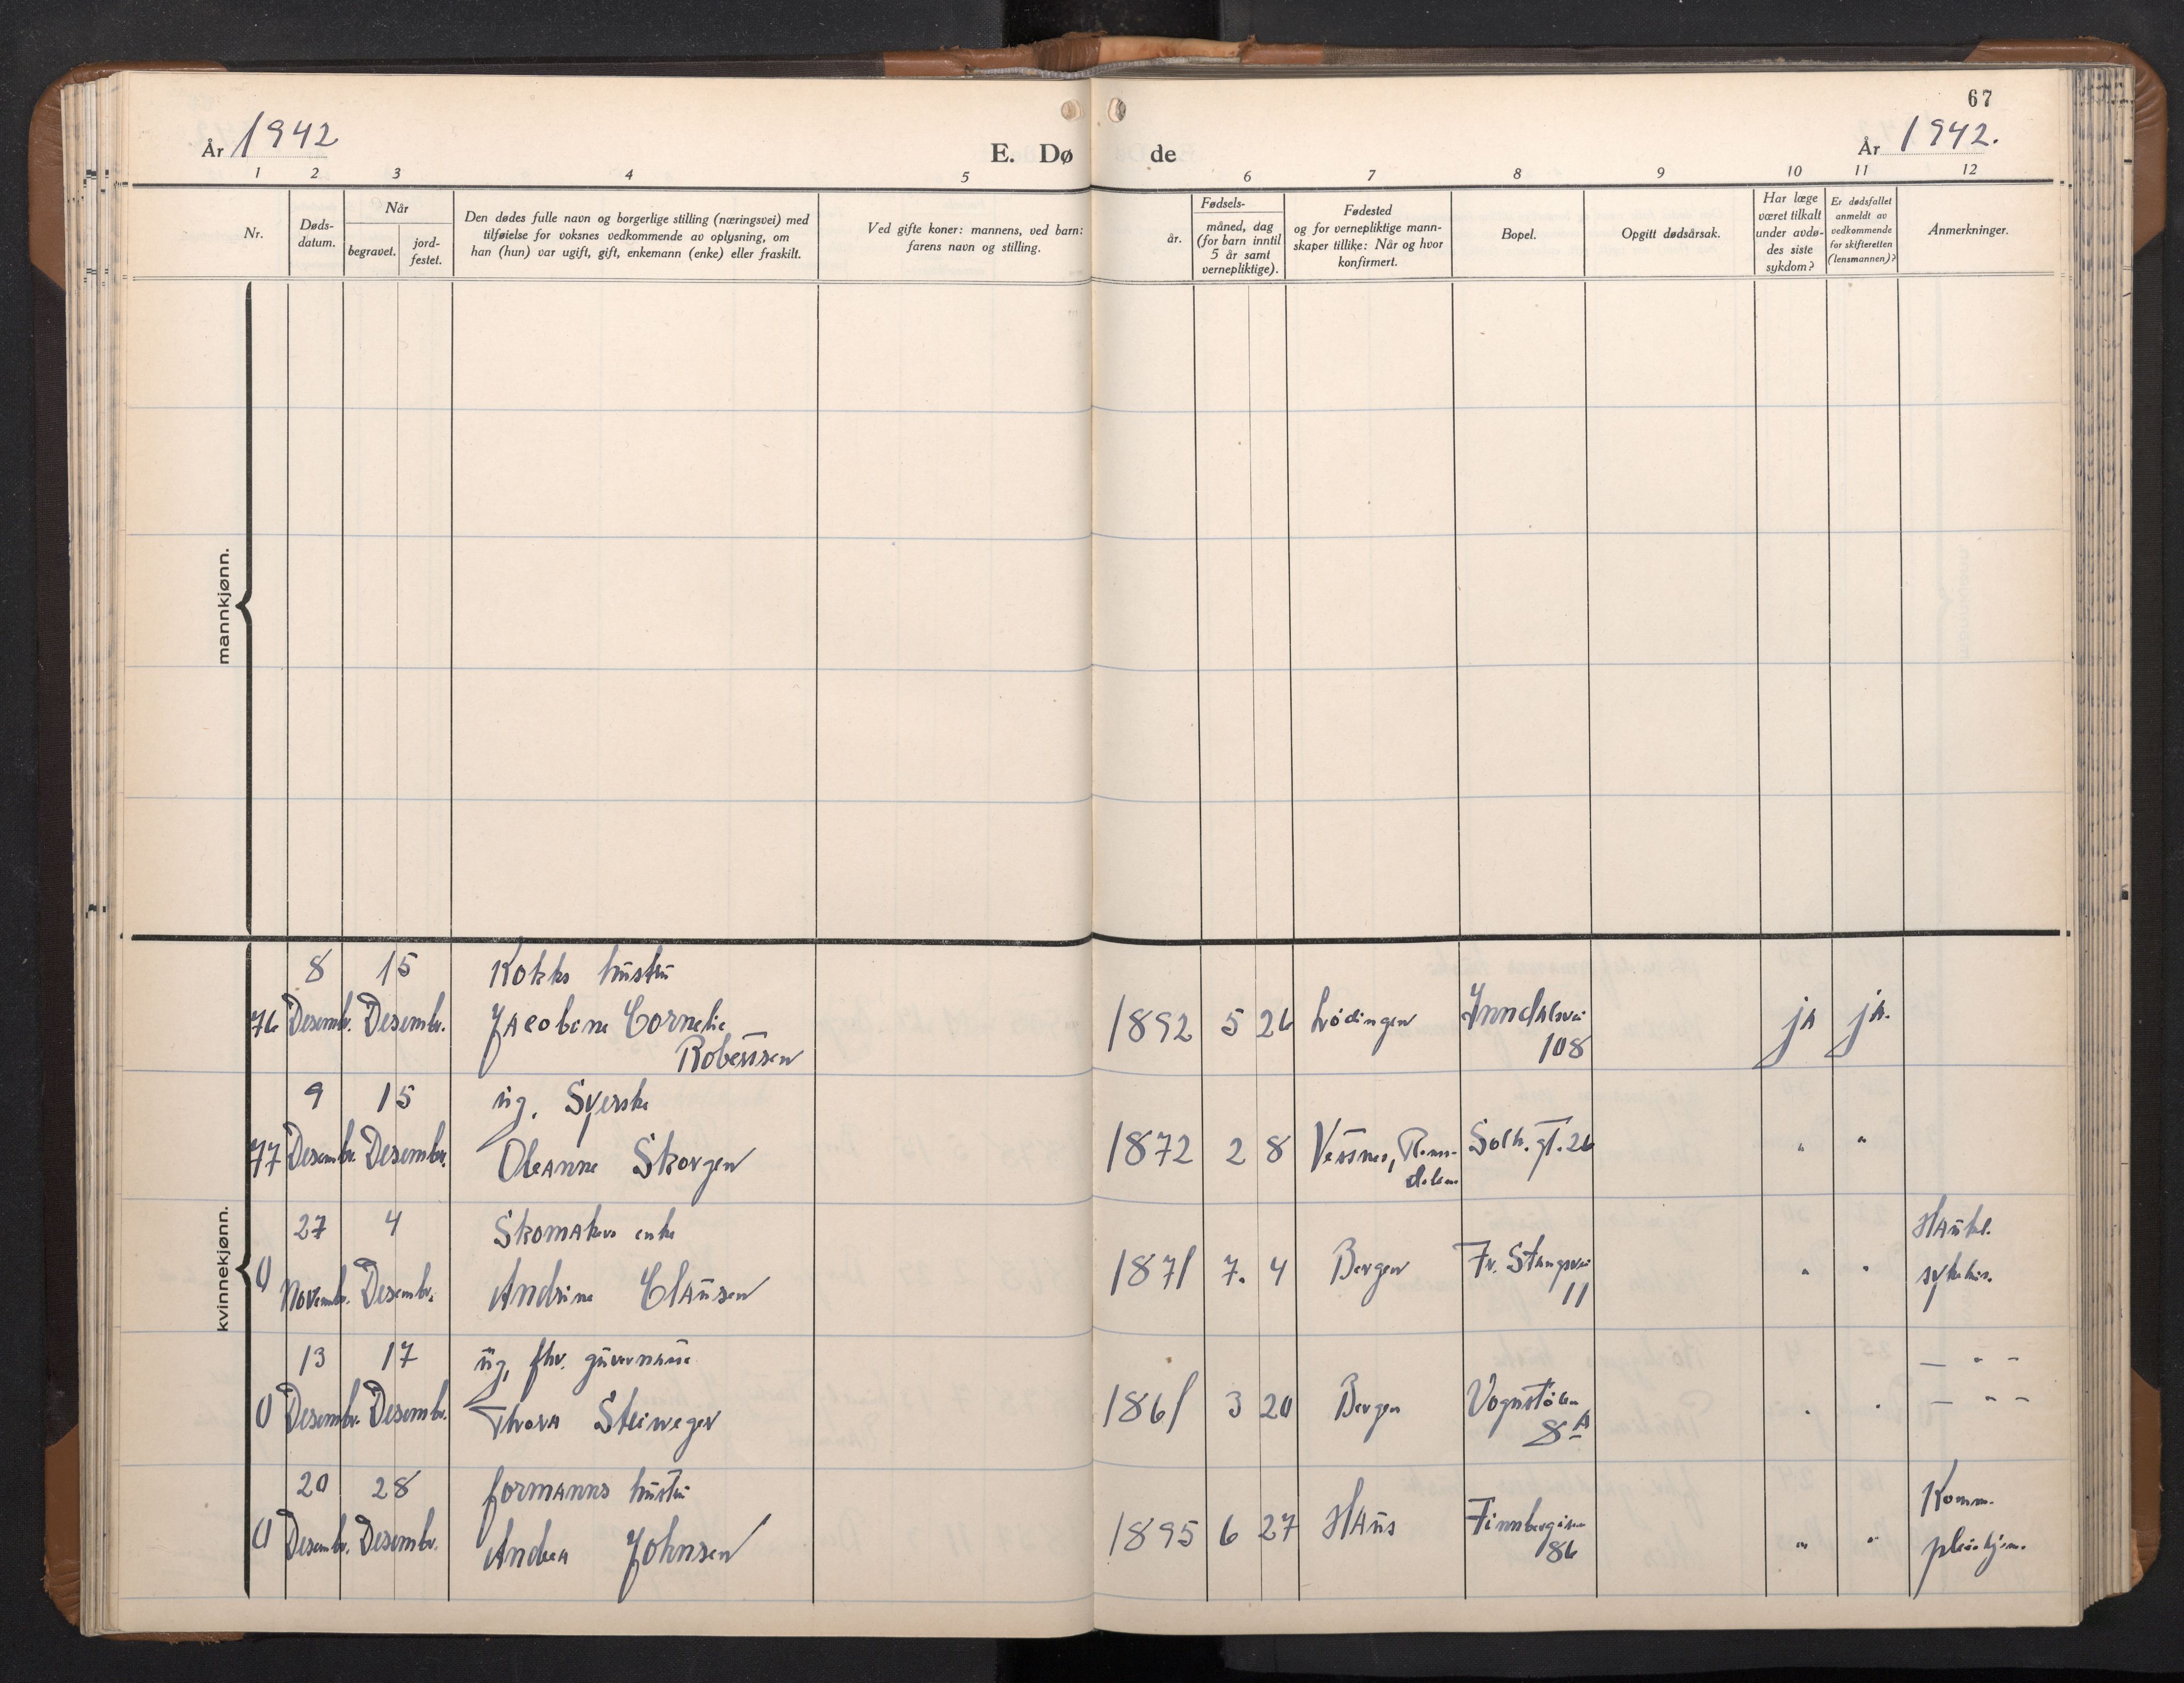 67
År 1942
E. Dø de
År 1942.
1 2 3 4 5 6 7 8 9 10 11 12
Nr.
Døds-
datum.
Når
begravet.
jord-
festet.
Den dødes fulle navn og borgerlige stilling (næringsvei) med
tilføielse for voksnes vedkommende av oplysning, om
han (hun) var ugift, gift, enkemann (enke) eller fraskilt.
Ved gifte koner: mannens, ved barn:
farens navn og stilling.
Fødsels-
år.
måned, dag
(for barn inntil
5 år samt
vernepliktige).
Fødested
og for vernepliktige mann-
skaper tillike: Når og hvor
konfirmert.
Bopel.
Opgitt dødsårsak.
Har læge
været tilkalt
under avdø-
des siste
sykdom?
Er dødsfallet
anmeldt av
vedkommende
for skifteretten
(lensmannen)?
Anmerkninger.
mannkjønn.
kvinnekjønn.
8 15 Kokks hustru
76 Desembr. Desembr. Jacobine Cornelie 1892 5 26 Lødingen Inndalsvei ja ja.
Robertsen 108
9 15 ug. Syerske
77 Desembr. Desembr. Oleanne Skorgen 1872 2 8 Vestnes, Roms- Solh. gt. 26 " "
dalen
27 4 Skomakers enke Haukel.
0 Novembr. Desembr. Andrine Clausen 1871 7. 4 Bergen Fr. Stangsvei " " sykehus.
11
13 17 ug, fhv. guvernante — " -
0 Desembr. Desembr. Thora Steinweger 1861 3 20 Bergen Vognstølen " " — " -
8 A
20 28 formanns hustru Komm.
0 Desembr. Desembr. Andrea Johnsen 1895 6 27 Haus Finnbergåsen " " pleiehjem.
86